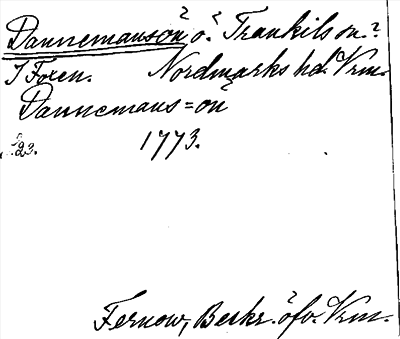 Dannemansön o. Trankils sn.?
I Foxen. Nordmarks hd. Vrm.
Dannemans=ön
s. 23. 1773.
Fernow, Beskr. öfv. Vrm.